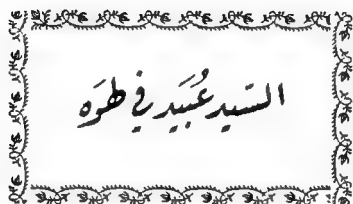 السَّيد عُبَيد في طوَه